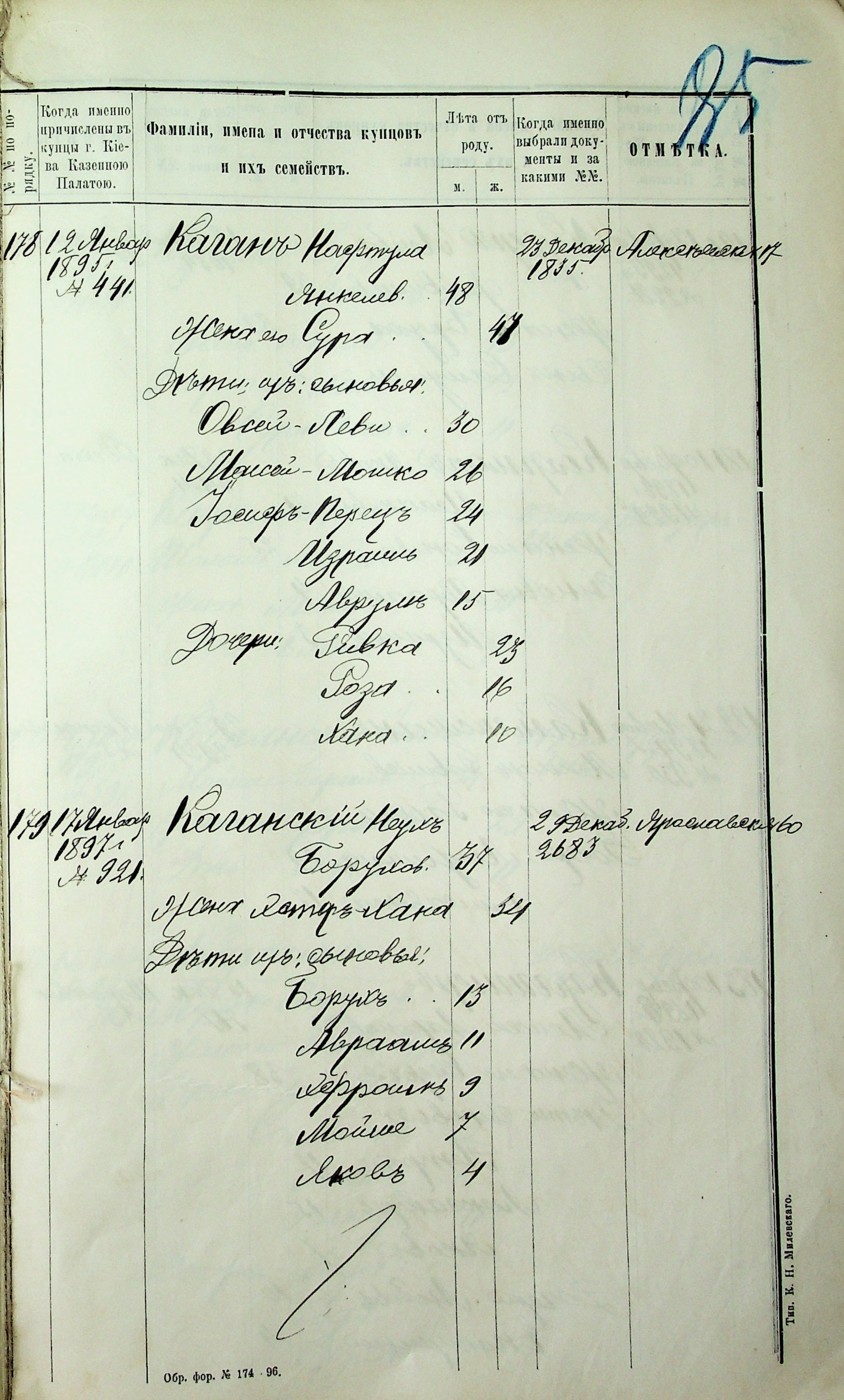 25
№№ по по-
рядку.
Когда именно
причислены въ
купцы г. Кіе-
ва Казенною
Палатою.
Фамиліи, имена и отчества купцовъ
и ихъ семействъ.
Лѣта отъ
роду.
м. ж.
Когда именно
выбрали доку-
менты и за
какими №№.
ОТМѢТКА.
178 12 Январ Каганъ Нафтула 23 Декабр
1895 г. Янкелев. 48 1855.
№ 441.
Жена его Сура . . 47
Дѣти: ихъ: сыновья:
Овсей-Леви . . 30
Моисей-Мошко 26
Іосифъ-Перецъ 24
Израиль 21
Аврумъ 15
Дочери: Ривка 23
Роза . . 16
Хана . . 10
179 17 Январ Каганскій Неухъ 29 Декаб. Ярославск 60
1897 г. Борухов. 37 2683
№ 921.
Жена Хана 34
Дѣти ихъ: сыновья:
Борухъ . . 13
Авраамъ 11
Эфроимъ 9
Мойше 7
Яковъ 4
Обр. фор. № 174—96.
Тип. К. Н. Милевскаго.